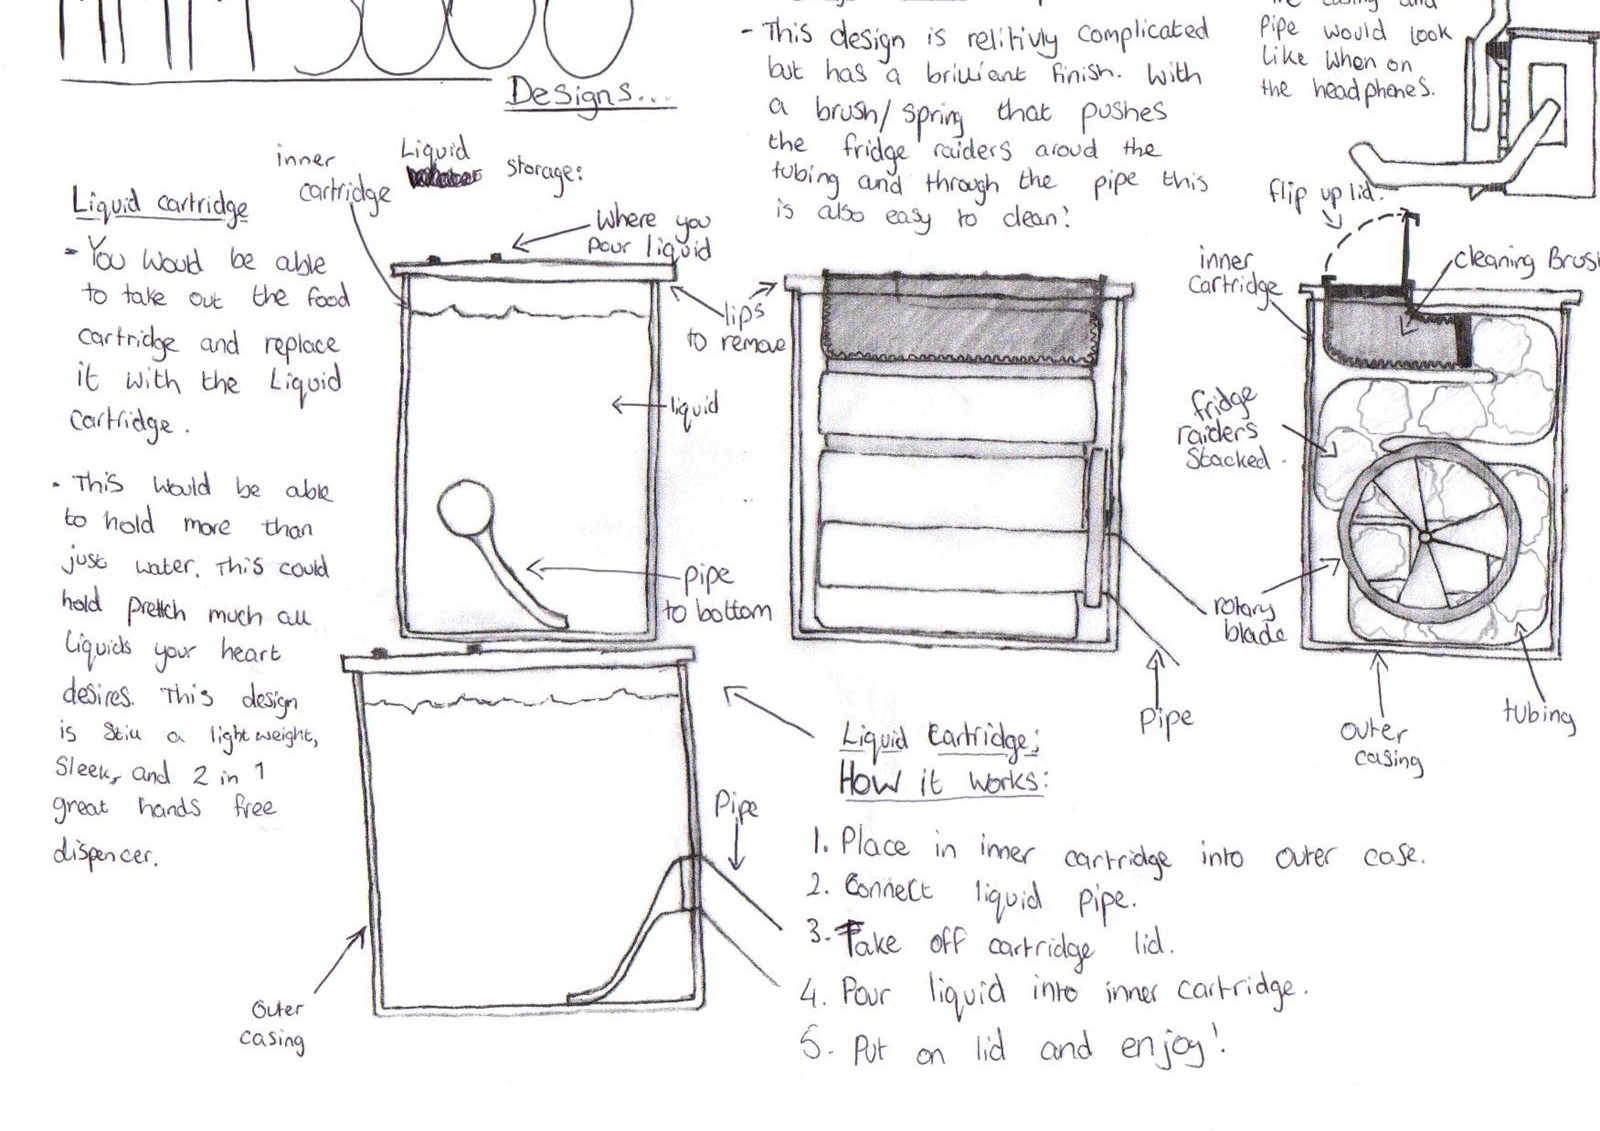 Designs...
- This design is relitivly complicated
but has a brillient finish. With
a brush/spring that pushes
the fridge raiders aroud the
tubing and through the pipe this
is also easy to clean!
the casing and
Pipe would look
Like when on
the headphones.
flip up lid.
inner
cartridge
Liquid
storage:
Where you
pour liquid
lips
to remove
liquid
pipe
to bottom
Liquid cartridge
- You would be able
to take out the food
cartridge and replace
it with the Liquid
cartridge.
- This would be able
to hold more than
just water. This could
hold prettch much all
Liquids your heart
desires. This design
is still a light weight,
Sleek, and 2 in 1
great hands free
dispencer.
inner
Cartridge
cleaning Brush
fridge
raiders
Stacked.
rotary
blade
Pipe
outer
casing
tubing
Pipe
Outer
casing
Liquid Cartridge;
How it works:
1. Place in inner cartridge into outer case.
2. Connect liquid pipe.
3. Take off cartridge lid.
4. Pour liquid into inner cartridge.
5. Put on lid and enjoy!